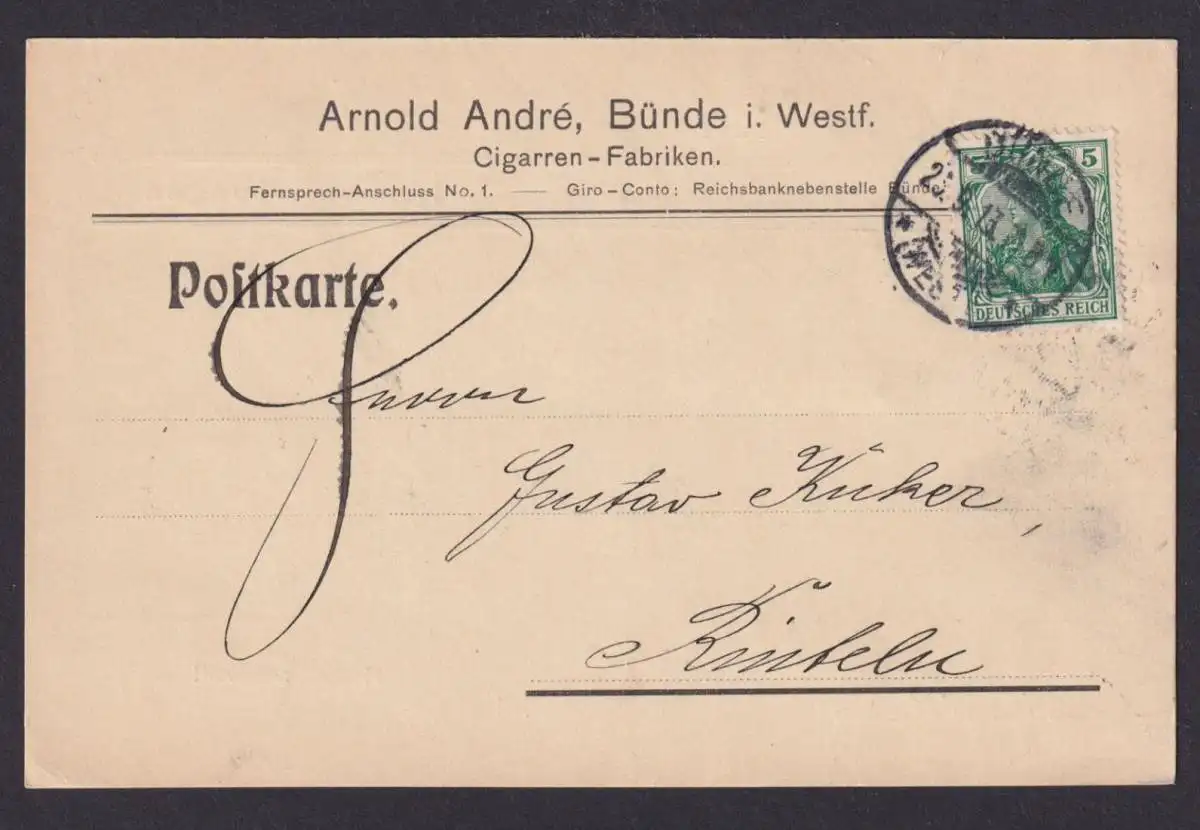 Arnold André, Bünde i. Westf.
Cigarren-Fabriken.
Fernsprech-Anschluss No. 1. — Giro-Conto: Reichsbanknebenstelle Bünde
5
DEUTSCHES REICH
Poſtkarte.
Herrn
Gustav Küker,
Rinteln